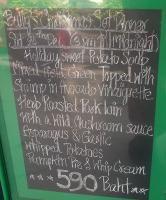 Set Dinner
Holiday Sweet Potato Soup
Mixed Field Green Topped with
Shrimp in Avocado Vinaigrette
Herb Roasted Pork Loin
with a Wild Mushroom Sauce
Asparagus & Garlic
Whipped Potatoes
Pumpkin Pie & Whip Cream
*** 590 Baht **